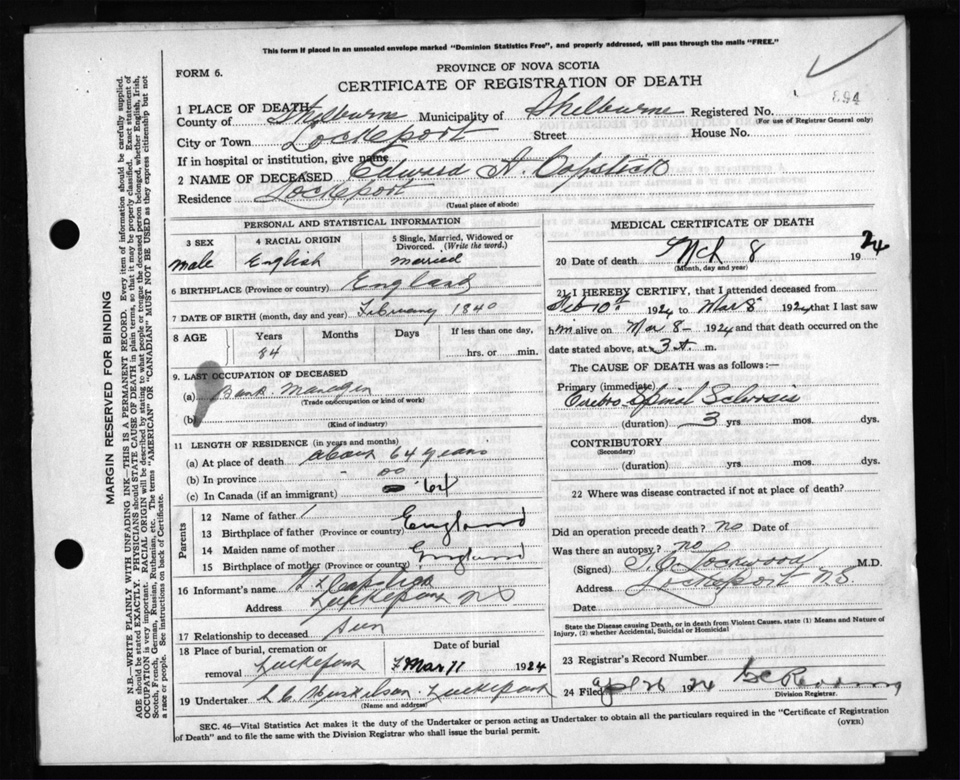 This form if placed in an unsealed envelope marked "Dominion Statistics Free", and properly addressed, will pass through the mails "FREE."
FORM 6.
PROVINCE OF NOVA SCOTIA
CERTIFICATE OF REGISTRATION OF DEATH
894
1 PLACE OF DEATH
County of Shelburne Municipality of Shelburne Registered No.
(For use of Registrar General only)
City or Town Lockeport Street House No.
If in hospital or institution, give name
2 NAME OF DECEASED Edward A. Copstick
Residence Lockeport
(Usual place of abode)
PERSONAL AND STATISTICAL INFORMATION
3 SEX 4 RACIAL ORIGIN 5 Single, Married, Widowed or Divorced. (Write the word.)
male English married
6 BIRTHPLACE (Province or country) England
7 DATE OF BIRTH (month, day and year) February 1840
8 AGE Years Months Days If less than one day,
84 hrs. or min.
9. LAST OCCUPATION OF DECEASED
(a) Bank Manager
(Trade or occupation or kind of work)
(b)
(Kind of industry)
11 LENGTH OF RESIDENCE (in years and months)
(a) At place of death about 64 years
(b) In province
(c) In Canada (if an immigrant) 64
Parents
12 Name of father
13 Birthplace of father (Province or country) England
14 Maiden name of mother
15 Birthplace of mother (Province or country) England
16 Informant's name Copstick
Address Lockeport N S
17 Relationship to deceased Son
18 Place of burial, cremation or removal Lockeport
Date of burial
Mar 11 1924
19 Undertaker Lockeport
(Name and address)
MEDICAL CERTIFICATE OF DEATH
20 Date of death Mch 8 1924
(Month, day and year)
21 I HEREBY CERTIFY, that I attended deceased from
Feb 10th 1924 to Mar 8 1924 that I last saw
him alive on Mar 8 1924 and that death occurred on the
date stated above, at 3 m.
The CAUSE OF DEATH was as follows:—
Primary (immediate)
Cerebro Spinal Sclerosis
(duration) 3 yrs. mos. dys.
CONTRIBUTORY
(Secondary)
(duration) yrs. mos. dys.
22 Where was disease contracted if not at place of death?
Did an operation precede death? no Date of
Was there an autopsy? no
(Signed) Lockwood M.D.
Address Lockeport N.S.
Date
State the Disease causing Death, or in death from Violent Causes, state (1) Means and Nature of Injury, (2) whether Accidental, Suicidal or Homicidal
23 Registrar's Record Number
24 Filed Apl 26 1924
Division Registrar.
SEC. 46—Vital Statistics Act makes it the duty of the Undertaker or person acting as Undertaker to obtain all the particulars required in the "Certificate of Registration
of Death" and to file the same with the Division Registrar who shall issue the burial permit.
(OVER)
MARGIN RESERVED FOR BINDING
N.B.—WRITE PLAINLY WITH UNFADING INK—THIS IS A PERMANENT RECORD. Every item of information should be carefully supplied.
AGE should be stated EXACTLY. PHYSICIANS should STATE CAUSE OF DEATH in plain terms, so that it may be properly classified. Exact statement of
OCCUPATION is very important. RACIAL ORIGIN will be described by stating to what people or tongue the deceased person belonged, whether English, Irish,
Scotch, French, German, Russian, Ruthenian, etc. The terms "AMERICAN" OR "CANADIAN" MUST NOT BE USED as they express citizenship but not
a race or people. See instructions on back of Certificate.